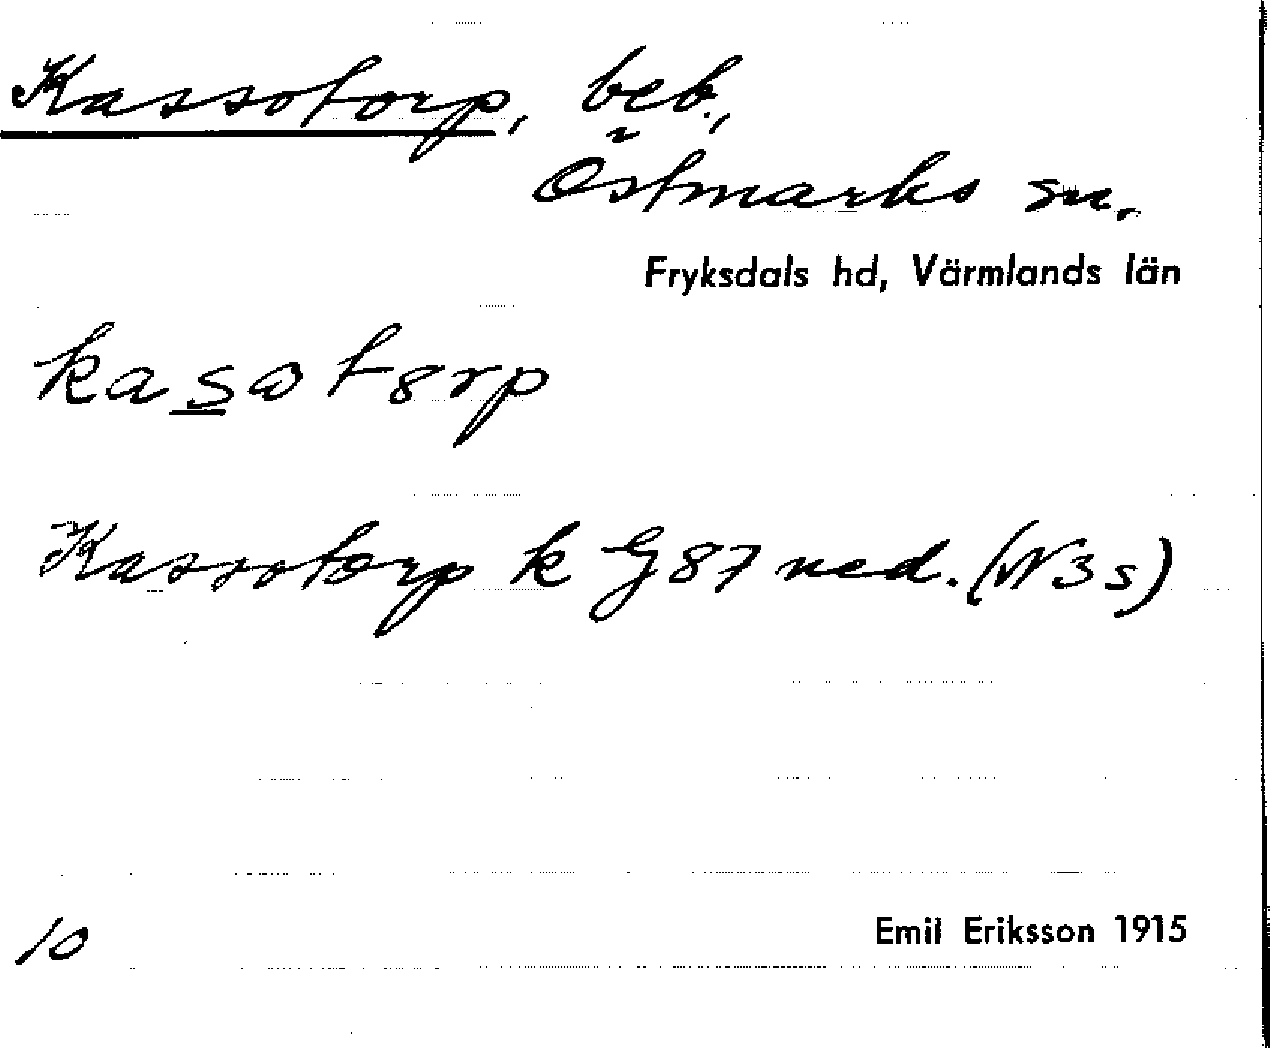 Kassotorp, beb.,
Östmarks sn.
Fryksdals hd, Värmlands län
kasot 8rp
Kassotorp k G 87 ned. (N 3 s)
10
Emil Eriksson 1915